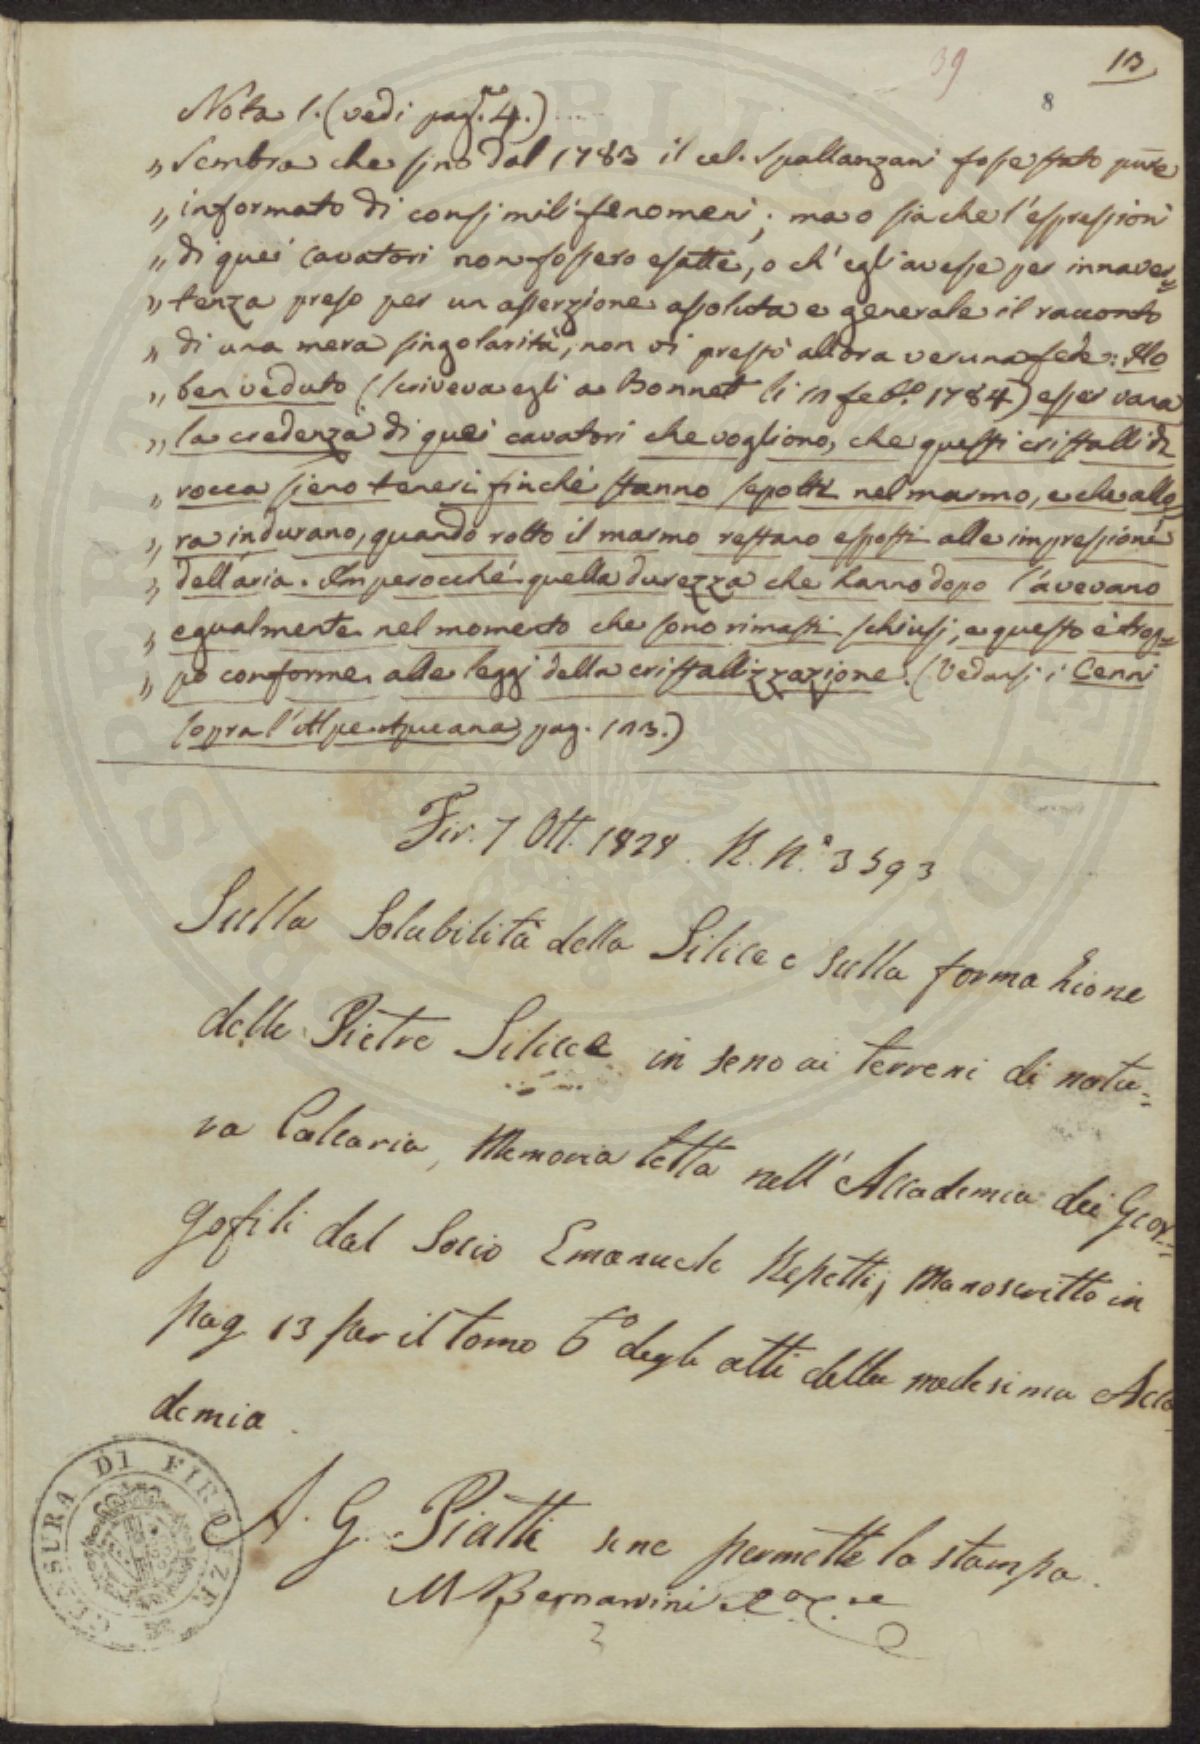 39
13
8
Nota 1. (vedi pag.na 4.)
„ Sembra che sino dal 1783 il cel. Spallanzani fosse stato pure
„ informato di consimili fenomeni; ma o sia che l'espressioni
„ di quei cavatori non fossero esatte, o ch'egli avesse per innaver=
„ tenza preso per un asserzione assoluta e generale il racconto
„ di una mera singolarità, non vi prestò allora veruna fede: Ho
„ ben veduto (scriveva egli a Bonnet li 12 feb.o 1784) esser vana
„ la credenza di quei cavatori che vogliono, che questi cristalli di
„ rocca sieno teneri finchè stanno sepolti nel marmo, e che allo
„ ra indurano, quando rotto il marmo restano esposti alle impressioni
„ dell'aria. Imperocchè quella durezza che hanno dopo l'avevano
„ egualmente nel momento che sono rimasti schiusi, e questo è trop=
„ po conforme alle leggi della cristallizzazione. (Vedansi i Cenni
sopra l'Alpe Apuana pag. 113.)
Fir. 7 Ott. 1828. R. N.o 3593
Sulla Solubilità della Silice e sulla formazione
delle Pietre Silicee in seno ai terreni di natu=
ra Calcaria, Memoria letta nell'Accademia dei Geor=
gofili dal Socio Emanuele Repetti; Manoscritto in
pag 13 per il tomo 6o degli atti della medesima Acca
demia.
A. G. Piatti se ne permette la stampa.
M Bernardini
CENSURA DI FIRENZE